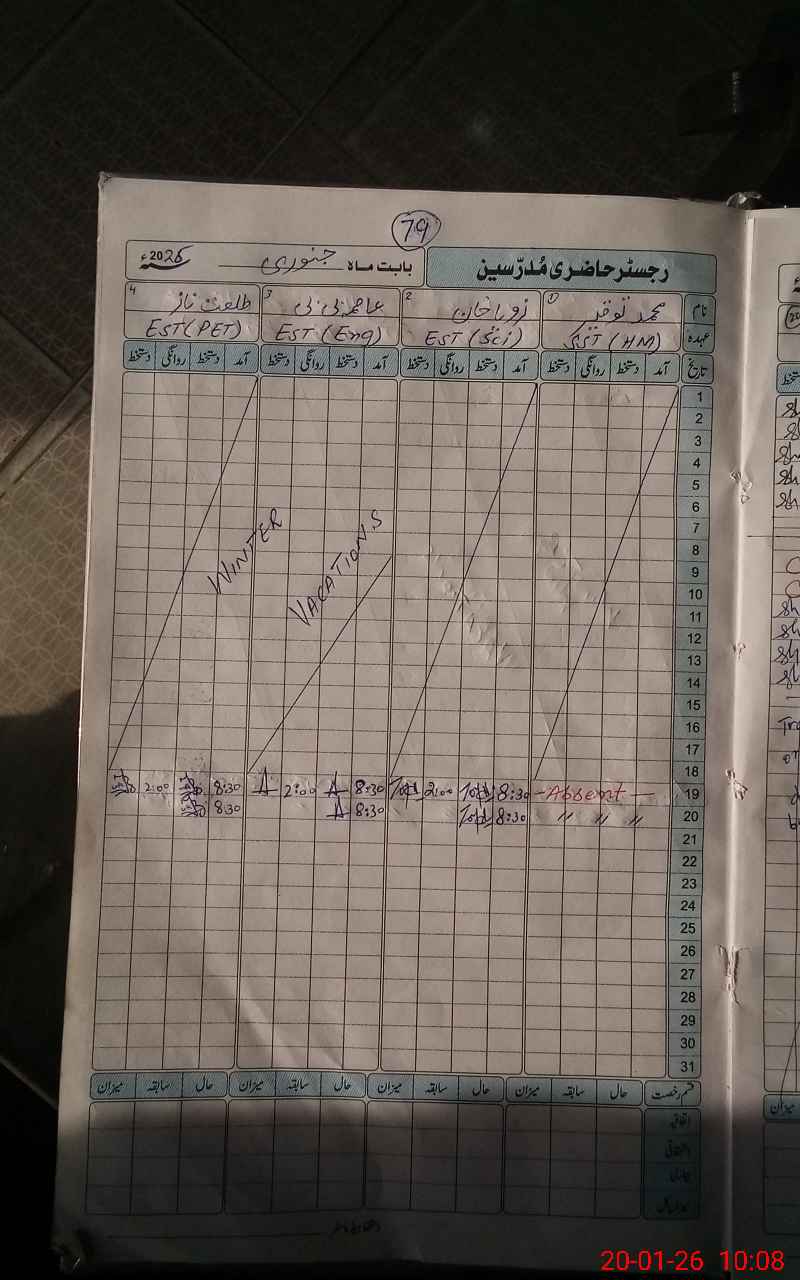 79
رجسٹر حاضری مُدرّسین
بابت ماہ جنوری 2026ء
نام 1 محمد توقیر 2 زویا خان 3 عاصمہ بی بی 4 طلعت ناز
عہدہ SST (HM) EST (Sci) EST (Eng) EST (PET)
تاریخ آمد دستخط روانگی دستخط آمد دستخط روانگی دستخط آمد دستخط روانگی دستخط آمد دستخط روانگی دستخط
1
2
3
4
5
6
7
8
9
10
11
12
13
14
15
16
17
18
WINTER
VACATIONS
19 -Absent- 8:30 2:00 8:30 2:00 8:30 2:00
20 〃 〃 〃 8:30 8:30 8:30
21
22
23
24
25
26
27
28
29
30
31
قسم رخصت حال سابقہ میزان حال سابقہ میزان حال سابقہ میزان حال سابقہ میزان
اتفاقیہ
20-01-26 10:08